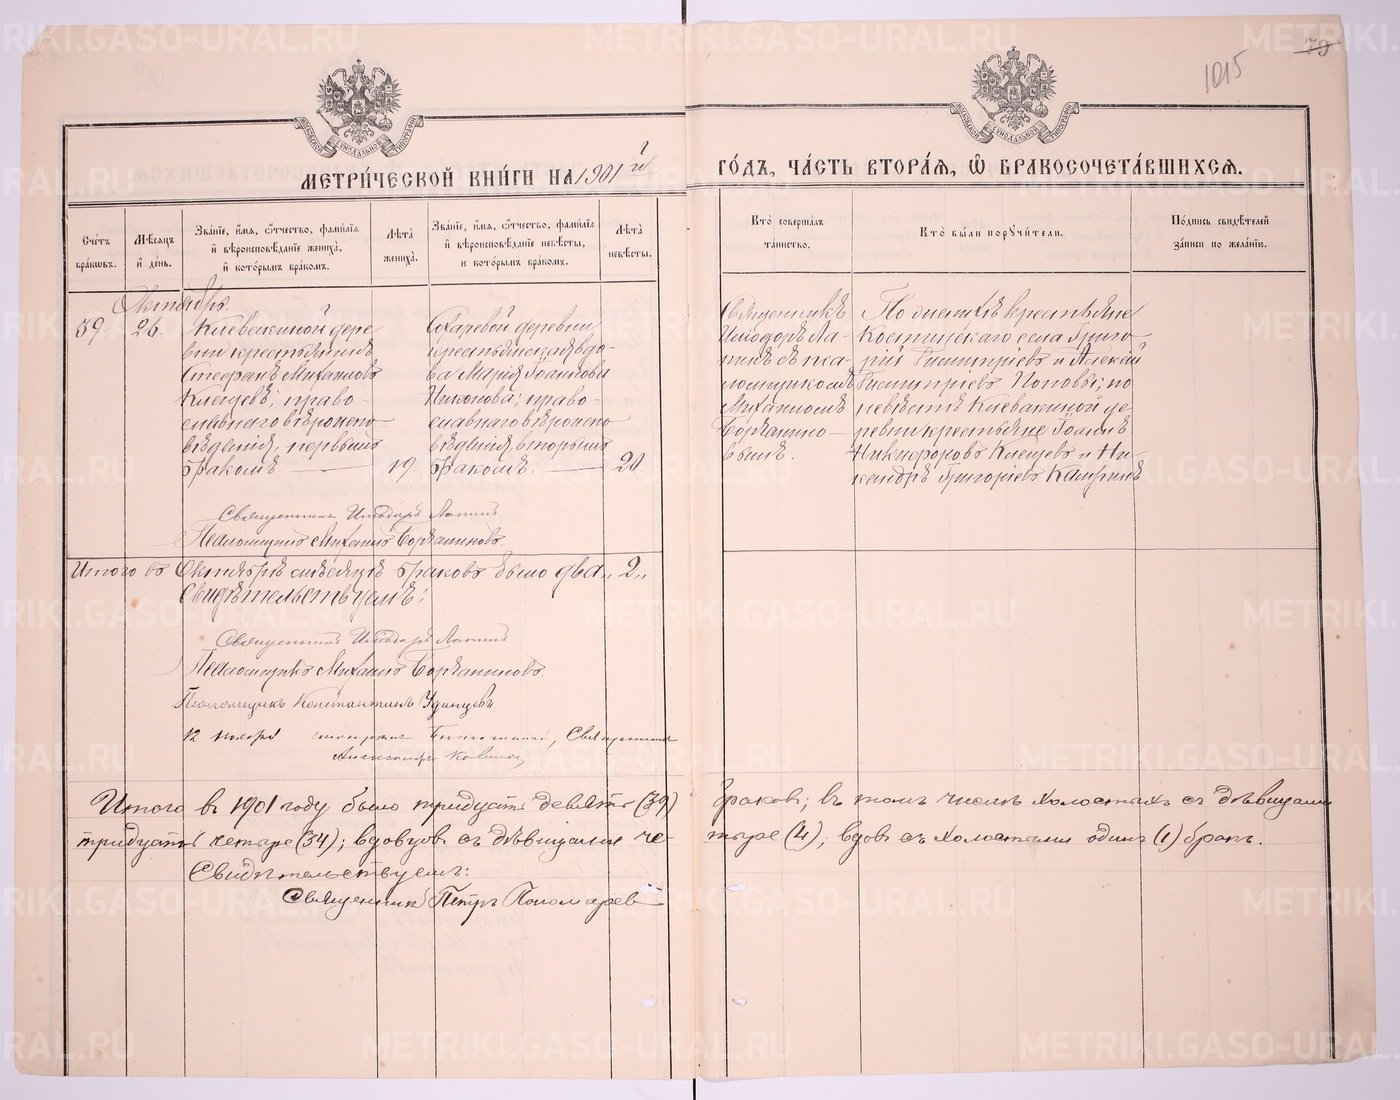 1015
79
МЕТРИ́ЧЕСКОЙ КНИ́ГИ НА 1901й
ГО́ДЪ, ЧА́СТЬ ВТОРА́Я, Ѡ БРАКОСОЧЕТА́ВШИХСѦ.
Сче́тъ бра́кѡвъ.
Мѣ́сѧцъ и҆ де́нь.
Зва́нїе, и҆́мѧ, ѻ҆́тчество, фамі́лїѧ и҆ вѣроисповѣ́данїе жениха̀, и҆ кото́рымъ бра́комъ.
Лѣ́та жениха̀.
Зва́нїе, и҆́мѧ, ѻ҆́тчество, фамі́лїѧ и҆ вѣроисповѣ́данїе невѣ́сты, и҆ кото́рымъ бра́комъ.
Лѣ́та невѣ́сты.
Кто̀ соверша́лъ та́инство.
Кто̀ бы́ли порꙋчи́тели.
По́дпись свидѣ́телей за́писи по жела́нїю.
Октябрь.
39.
26.
Клевакиной дере-
вни крестьянинъ
Стефанъ Михаиловъ
Клещевъ; право-
славнаго вѣроиспо-
вѣданія, первымъ
бракомъ
19
деревни
крестьянская вдо-
ва Марія Іоаннова
Никонова; право-
славнаго вѣроиспо-
вѣданія, вторымъ
бракомъ.
20
Священникъ
Исидоръ Ла-
пинъ съ пса-
ломщикомъ
Михаиломъ
По женихѣ крестьяне
села Григо-
рій Димитріевъ и Алексѣй
Димитріевъ Поповы; по
невѣстѣ Клевакиной де-
ревни крестьяне Іоаннъ
Никифоровъ Клещевъ и Ни-
кандръ Григоріевъ
Священникъ Исидоръ Лапинъ
Псаломщикъ Михаилъ
Итого въ Октябрѣ мѣсяцѣ браковъ было два „2„
Свидѣтельствуемъ:
Священникъ Исидоръ Лапинъ
Псаломщикъ Михаилъ
Псаломщикъ Константинъ Удинцевъ
12 ноября Благочинный, Священникъ
Александръ
Итого въ 1901 году было тридцать девять (39)
браковъ; въ томъ числѣ холостыхъ съ дѣвицами
тридцать четыре (34); вдовцовъ съ дѣвицами че-
тыре (4); вдовъ съ холостыми одинъ (1) бракъ.
Свидѣтельствуемъ:
Священникъ Петръ Пономаревъ
METRIKI.GASO-URAL.RU